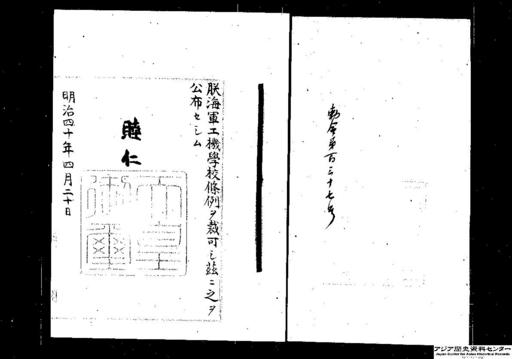 勅令第百三十七号
朕海軍工機學校條例ヲ裁可シ茲ニ之ヲ
公布セシム
睦仁
天皇
御璽
明治四十年四月二十日
アジア歴史資料センター
Japan Center for Asian Historical Records